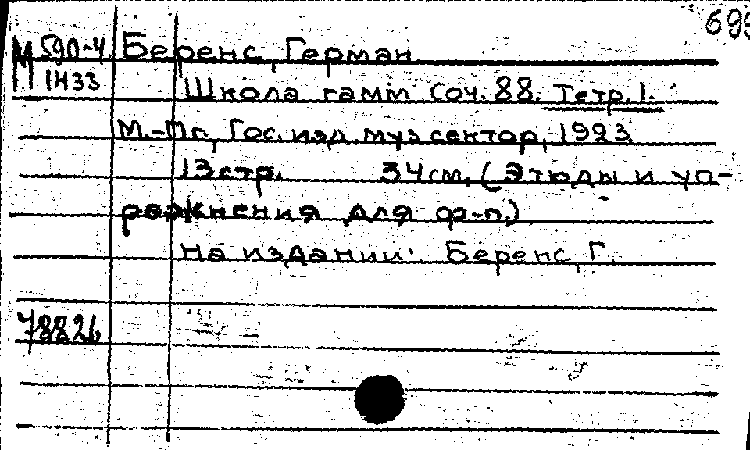 693
М 590-4 Беренс, Герман
1Н33
Школа гамм Соч. 88. Тетр. 1.
М.-Пг., Гос. изд. муз сектор, 1923
13 стр. 34 см. (Этюды и уп-
ражнения для ф-п.)
На издании: Беренс, Г.
78826